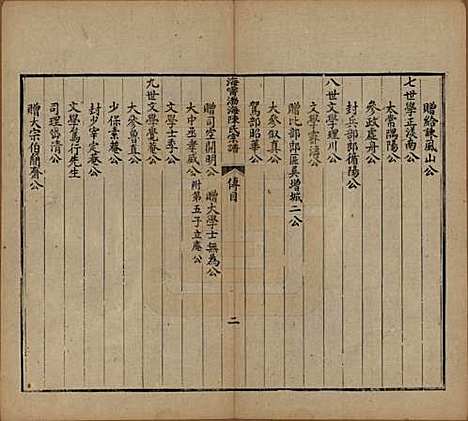 贈給諫鳳山公
七世學正淺南公
太常隅陽公
參政虔舟公
封兵部郎循陽公
八世文學理川公
文學霽濤公
贈比部郎區吳增城二公
大參似真公
駕部昭華公
海寧渤海陳氏宗譜 傳目 二
贈司空開明公 贈大學士無為公
大中丞孝威公 附第五子立庵公
文學士季公
九世文學覺菴公
大參魯直公
少保素菴公
封少宰定菴公
文學篤行先生
司理岱清公
贈大宗伯簡齋公